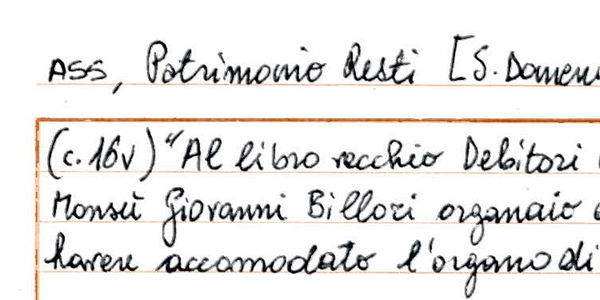 ASS, Patrimonio Resti [S. Domen
(c. 16v) "Al libro vecchio Debitori
Monsù Giovanni Billori organaio
havere accomodato l'organo di